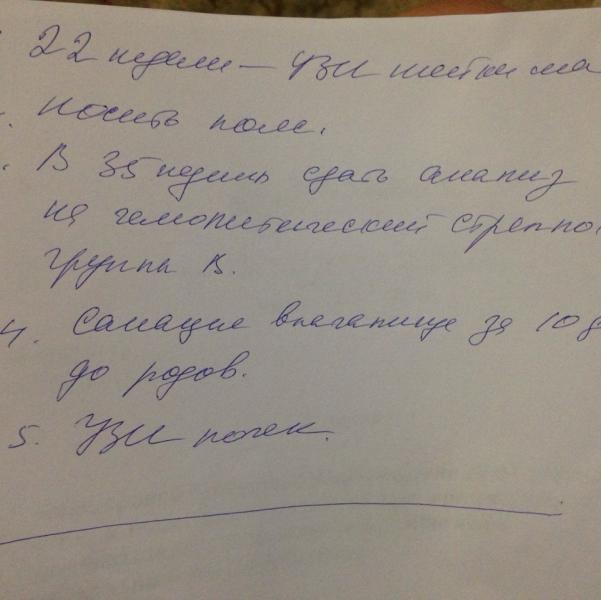 22 недели — УЗИ шейки ма
Носить пояс.
В 35 недель сдать анализ
на гемолитический стрепто
группы В.
4. Санация влагалища за 10 д
до родов.
5. УЗИ почек.